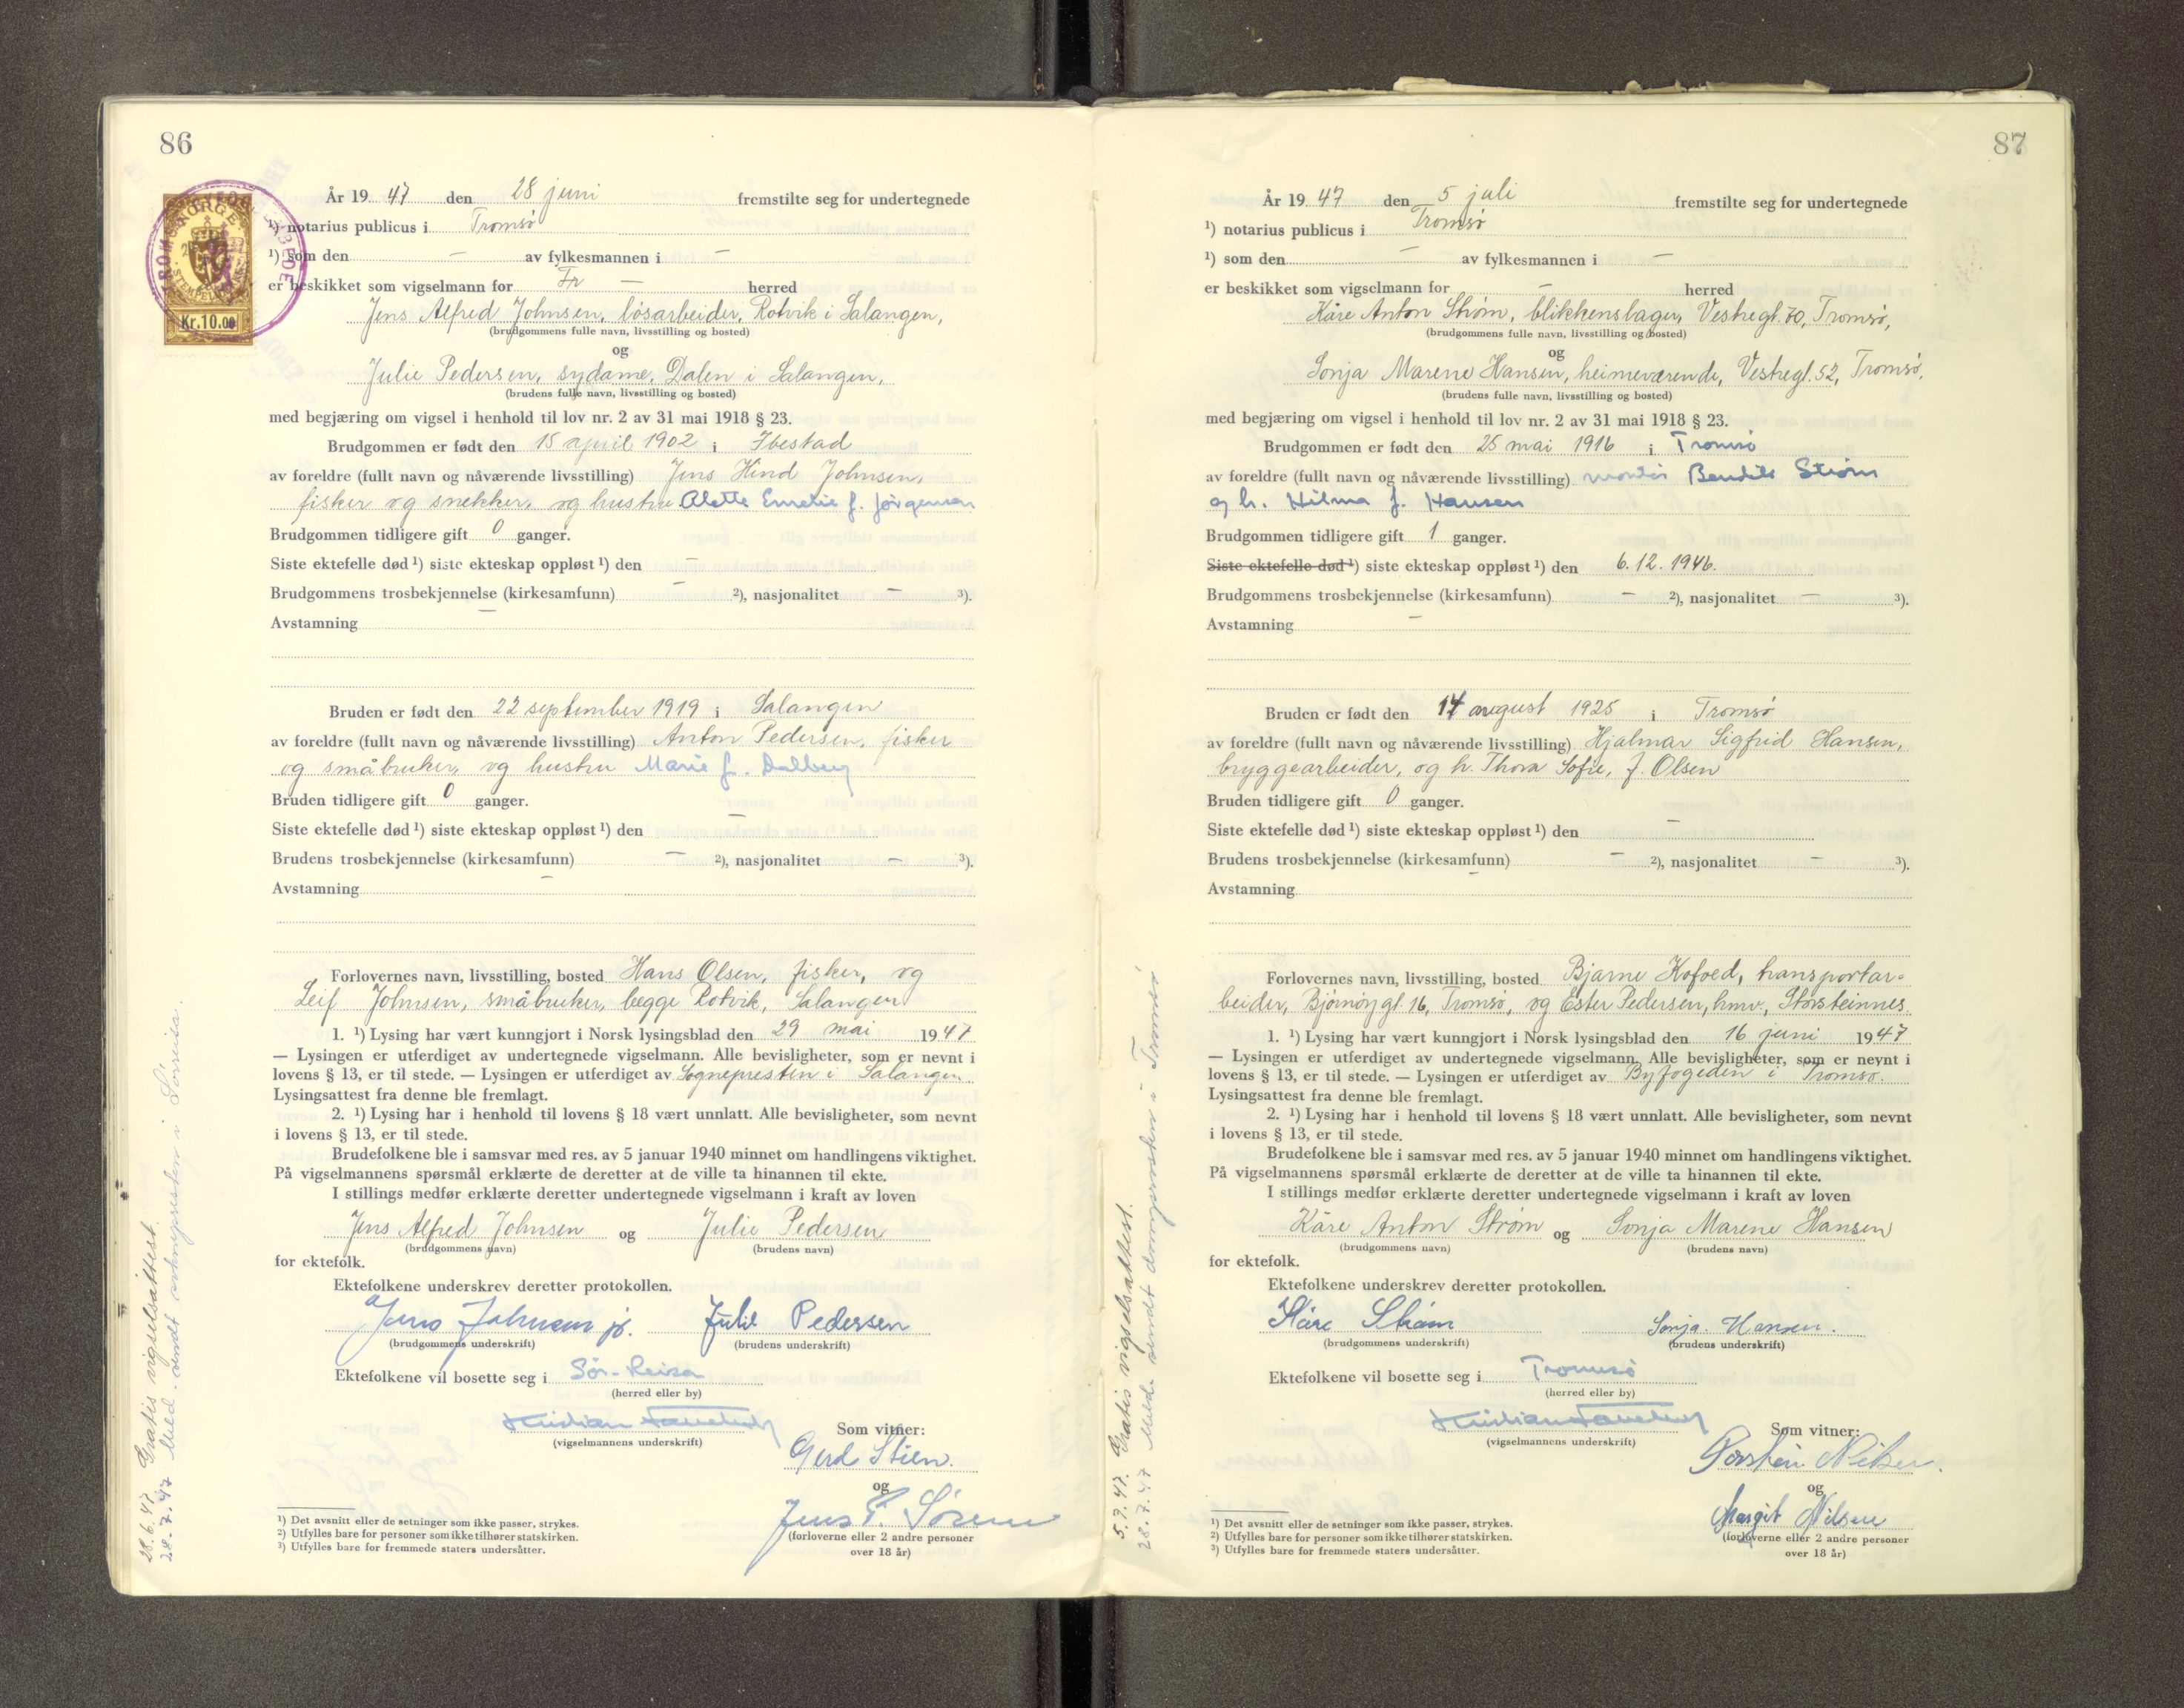 86
NORGE
STEMPEL
Kr.10.00
År 1947 den 28 juni fremstilte seg for undertegnede
¹) notarius publicus i Tromsø
¹) som den — av fylkesmannen i —
er beskikket som vigselmann for — herred
Jens Alfred Johnsen, løsarbeider, Rotvik i Salangen,
(brudgommens fulle navn, livsstilling og bosted)
og
Julie Pedersen, sydame, Dalen i Salangen,
(brudens fulle navn, livsstilling og bosted)
med begjæring om vigsel i henhold til lov nr. 2 av 31 mai 1918 § 23.
Brudgommen er født den 15 april 1902 i Ibestad
av foreldre (fullt navn og nåværende livsstilling) Jens Hind Johnsen,
fisker og snekker, og hustru Alette Emelie f. Jørgensen
Brudgommen tidligere gift 0 ganger.
Siste ektefelle død ¹) siste ekteskap oppløst ¹) den —
Brudgommens trosbekjennelse (kirkesamfunn) — ²), nasjonalitet — ³).
Avstamning —
Bruden er født den 22 september 1919 i Salangen
av foreldre (fullt navn og nåværende livsstilling) Anton Pedersen, fisker
og småbruker, og hustru Marie f. Dalberg
Bruden tidligere gift 0 ganger.
Siste ektefelle død ¹) siste ekteskap oppløst ¹) den —
Brudens trosbekjennelse (kirkesamfunn) — ²), nasjonalitet — ³).
Avstamning —
Forlovernes navn, livsstilling, bosted Hans Olsen, fisker, og
Leif Johnsen, småbruker, begge Rotvik, Salangen
1. ¹) Lysing har vært kunngjort i Norsk lysingsblad den 29 mai 1947
— Lysingen er utferdiget av undertegnede vigselmann. Alle bevisligheter, som er nevnt i
lovens § 13, er til stede. — Lysingen er utferdiget av Sognepresten i Salangen
Lysingsattest fra denne ble fremlagt.
2. ¹) Lysing har i henhold til lovens § 18 vært unnlatt. Alle bevisligheter, som nevnt
i lovens § 13, er til stede.
Brudefolkene ble i samsvar med res. av 5 januar 1940 minnet om handlingens viktighet.
På vigselmannens spørsmål erklærte de deretter at de ville ta hinannen til ekte.
I stillings medfør erklærte deretter undertegnede vigselmann i kraft av loven
Jens Alfred Johnsen og Julie Pedersen
(brudgommens navn) (brudens navn)
for ektefolk.
Ektefolkene underskrev deretter protokollen.
Jens Johnsen jr. Julie Pedersen
(brudgommens underskrift) (brudens underskrift)
Ektefolkene vil bosette seg i Sør-Reisa
(herred eller by)
Kristian
(vigselmannens underskrift)
Som vitner:
Gerd Stien.
og
Jens P. Sørum
(forloverne eller 2 andre personer
over 18 år)
¹) Det avsnitt eller de setninger som ikke passer, strykes.
²) Utfylles bare for personer som ikke tilhører statskirken.
³) Utfylles bare for fremmede staters undersåtter.
28.6.47. Gratis vigselsattest.
28.7.47 Meld. sendt soknepresten i Sørreisa.
87
År 1947 den 5 juli fremstilte seg for undertegnede
¹) notarius publicus i Tromsø
¹) som den — av fylkesmannen i —
er beskikket som vigselmann for — herred
Kåre Anton Strøm, blikkenslager, Vestregt. 70, Tromsø,
(brudgommens fulle navn, livsstilling og bosted)
og
Sonja Marene Hansen, heimeværende, Vestregt. 52, Tromsø.
(brudens fulle navn, livsstilling og bosted)
med begjæring om vigsel i henhold til lov nr. 2 av 31 mai 1918 § 23.
Brudgommen er født den 25 mai 1916 i Tromsø
av foreldre (fullt navn og nåværende livsstilling) montør Bendik Strøm
og h. Hilma f. Hansen
Brudgommen tidligere gift 1 ganger.
Siste ektefelle død ¹) siste ekteskap oppløst ¹) den 6.12.1946.
Brudgommens trosbekjennelse (kirkesamfunn) — ²), nasjonalitet — ³).
Avstamning —
Bruden er født den 14 august 1925 i Tromsø
av foreldre (fullt navn og nåværende livsstilling) Hjalmar Sigfrid Hansen,
bryggearbeider, og h. Thora Sofie, f. Olsen
Bruden tidligere gift 0 ganger.
Siste ektefelle død ¹) siste ekteskap oppløst ¹) den —
Brudens trosbekjennelse (kirkesamfunn) — ²), nasjonalitet — ³).
Avstamning —
Forlovernes navn, livsstilling, bosted Bjarne Kofoed, transportar-
beider, Bjørnøygt. 16, Tromsø, og Ester Pedersen, hmv., Storsteinnes.
1. ¹) Lysing har vært kunngjort i Norsk lysingsblad den 16 juni 1947
— Lysingen er utferdiget av undertegnede vigselmann. Alle bevisligheter, som er nevnt i
lovens § 13, er til stede. — Lysingen er utferdiget av Byfogden i Tromsø.
Lysingsattest fra denne ble fremlagt.
2. ¹) Lysing har i henhold til lovens § 18 vært unnlatt. Alle bevisligheter, som nevnt
i lovens § 13, er til stede.
Brudefolkene ble i samsvar med res. av 5 januar 1940 minnet om handlingens viktighet.
På vigselmannens spørsmål erklærte de deretter at de ville ta hinannen til ekte.
I stillings medfør erklærte deretter undertegnede vigselmann i kraft av loven
Kåre Anton Strøm og Sonja Marene Hansen
(brudgommens navn) (brudens navn)
for ektefolk.
Ektefolkene underskrev deretter protokollen.
Kåre Strøm Sonja Hansen.
(brudgommens underskrift) (brudens underskrift)
Ektefolkene vil bosette seg i Tromsø
(herred eller by)
Kristian
(vigselmannens underskrift)
Som vitner:
Torstein Nilsen.
og
Margit Nilsen
(forloverne eller 2 andre personer
over 18 år)
¹) Det avsnitt eller de setninger som ikke passer, strykes.
²) Utfylles bare for personer som ikke tilhører statskirken.
³) Utfylles bare for fremmede staters undersåtter.
5.7.47. Gratis vigselsattest.
28.7.47 Meld. sendt domprosten i Tromsø